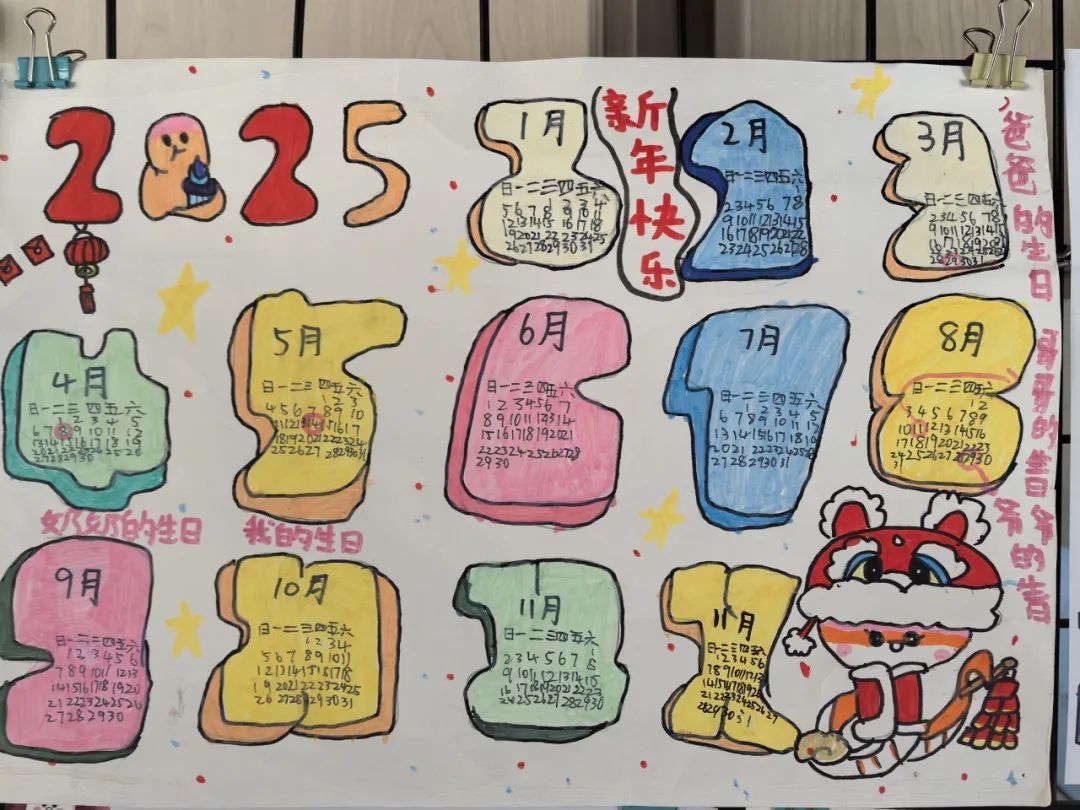 2025
1月
日一二三四五六
1 2 3 4
5 6 7 8 9 10 11
12 13 14 15 16 17 18
19 20 21 22 23 24 25
26 27 28 29 30 31
新年快乐
2月
日一二三四五六
2 3 4 5 6 7 8
9 10 11 12 13 14 15
16 17 18 19 20 21 22
23 24 25 26 27 28
3月
日一二三四五六
2 3 4 5 6 7 8
9 10 11 12 13 14 15
28 29 30 31
爸爸的生日
4月
日一二三四五六
1 2 3 4 5
6 7 8 9 10 11 12
13 14 15 16 17 18 19
20 21 22 23 24 25 26
27 28 29 30
奶奶的生日
5月
日一二三四五六
1 2 3
4 5 6 7 8 9 10
11 12 13 14 15 16 17
18 19 20 21 22 23 24
25 26 27 28 29 30 31
我的生日
6月
日一二三四五六
1 2 3 4 5 6 7
8 9 10 11 12 13 14
15 16 17 18 19 20 21
22 23 24 25 26 27 28
29 30
7月
日一二三四五六
1 2 3 4 5
6 7 8 9 10 11 12
13 14 15 16 17 18 19
20 21 22 23 24 25 26
27 28 29 30 31
8月
日一二三四五六
1 2
3 4 5 6 7 8 9
10 11 12 13 14 15 16
17 18 19 20 21 22 23
24 25 26 27 28 29 30
31
哥哥的生日
爷爷的生日
9月
日一二三四五六
1 2 3 4 5 6
7 8 9 10 11 12 13
14 15 16 17 18 19 20
21 22 23 24 25 26
27 28 29 30
10月
日一二三四五六
1 2 3 4
5 6 7 8 9 10 11
12 13 14 15 16 17 18
19 20 21 22 23 24 25
26 27 28 29 30 31
11月
日一二三四五六
1
2 3 4 5 6 7 8
9 10 11 12 13 14 15
16 17 18 19 20 21 22 23
24 25 26 27 28 29 30
11月
日一二三四五六
1 2 3 4 5 6
7 8 9 10 11 12 13
14 15 16 17 18 19 20
21 22 23 24 25 26 27
28 29 30 31